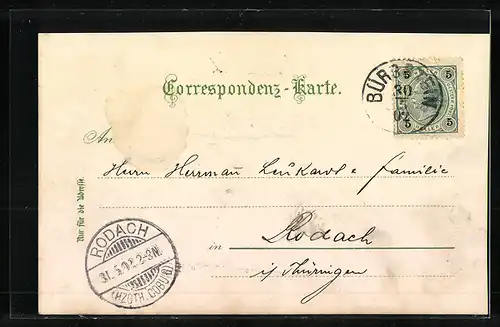 Correspondenz-Karte.
5 5
BÜR
30
5
02
5 5
An
Herrn Herrmañ Leukard & Familie
Nur für die Adresse.
RODACH
31.5.02.2-3N.
(HZGTH. COBURG)
in Rodach
i/Thüringen